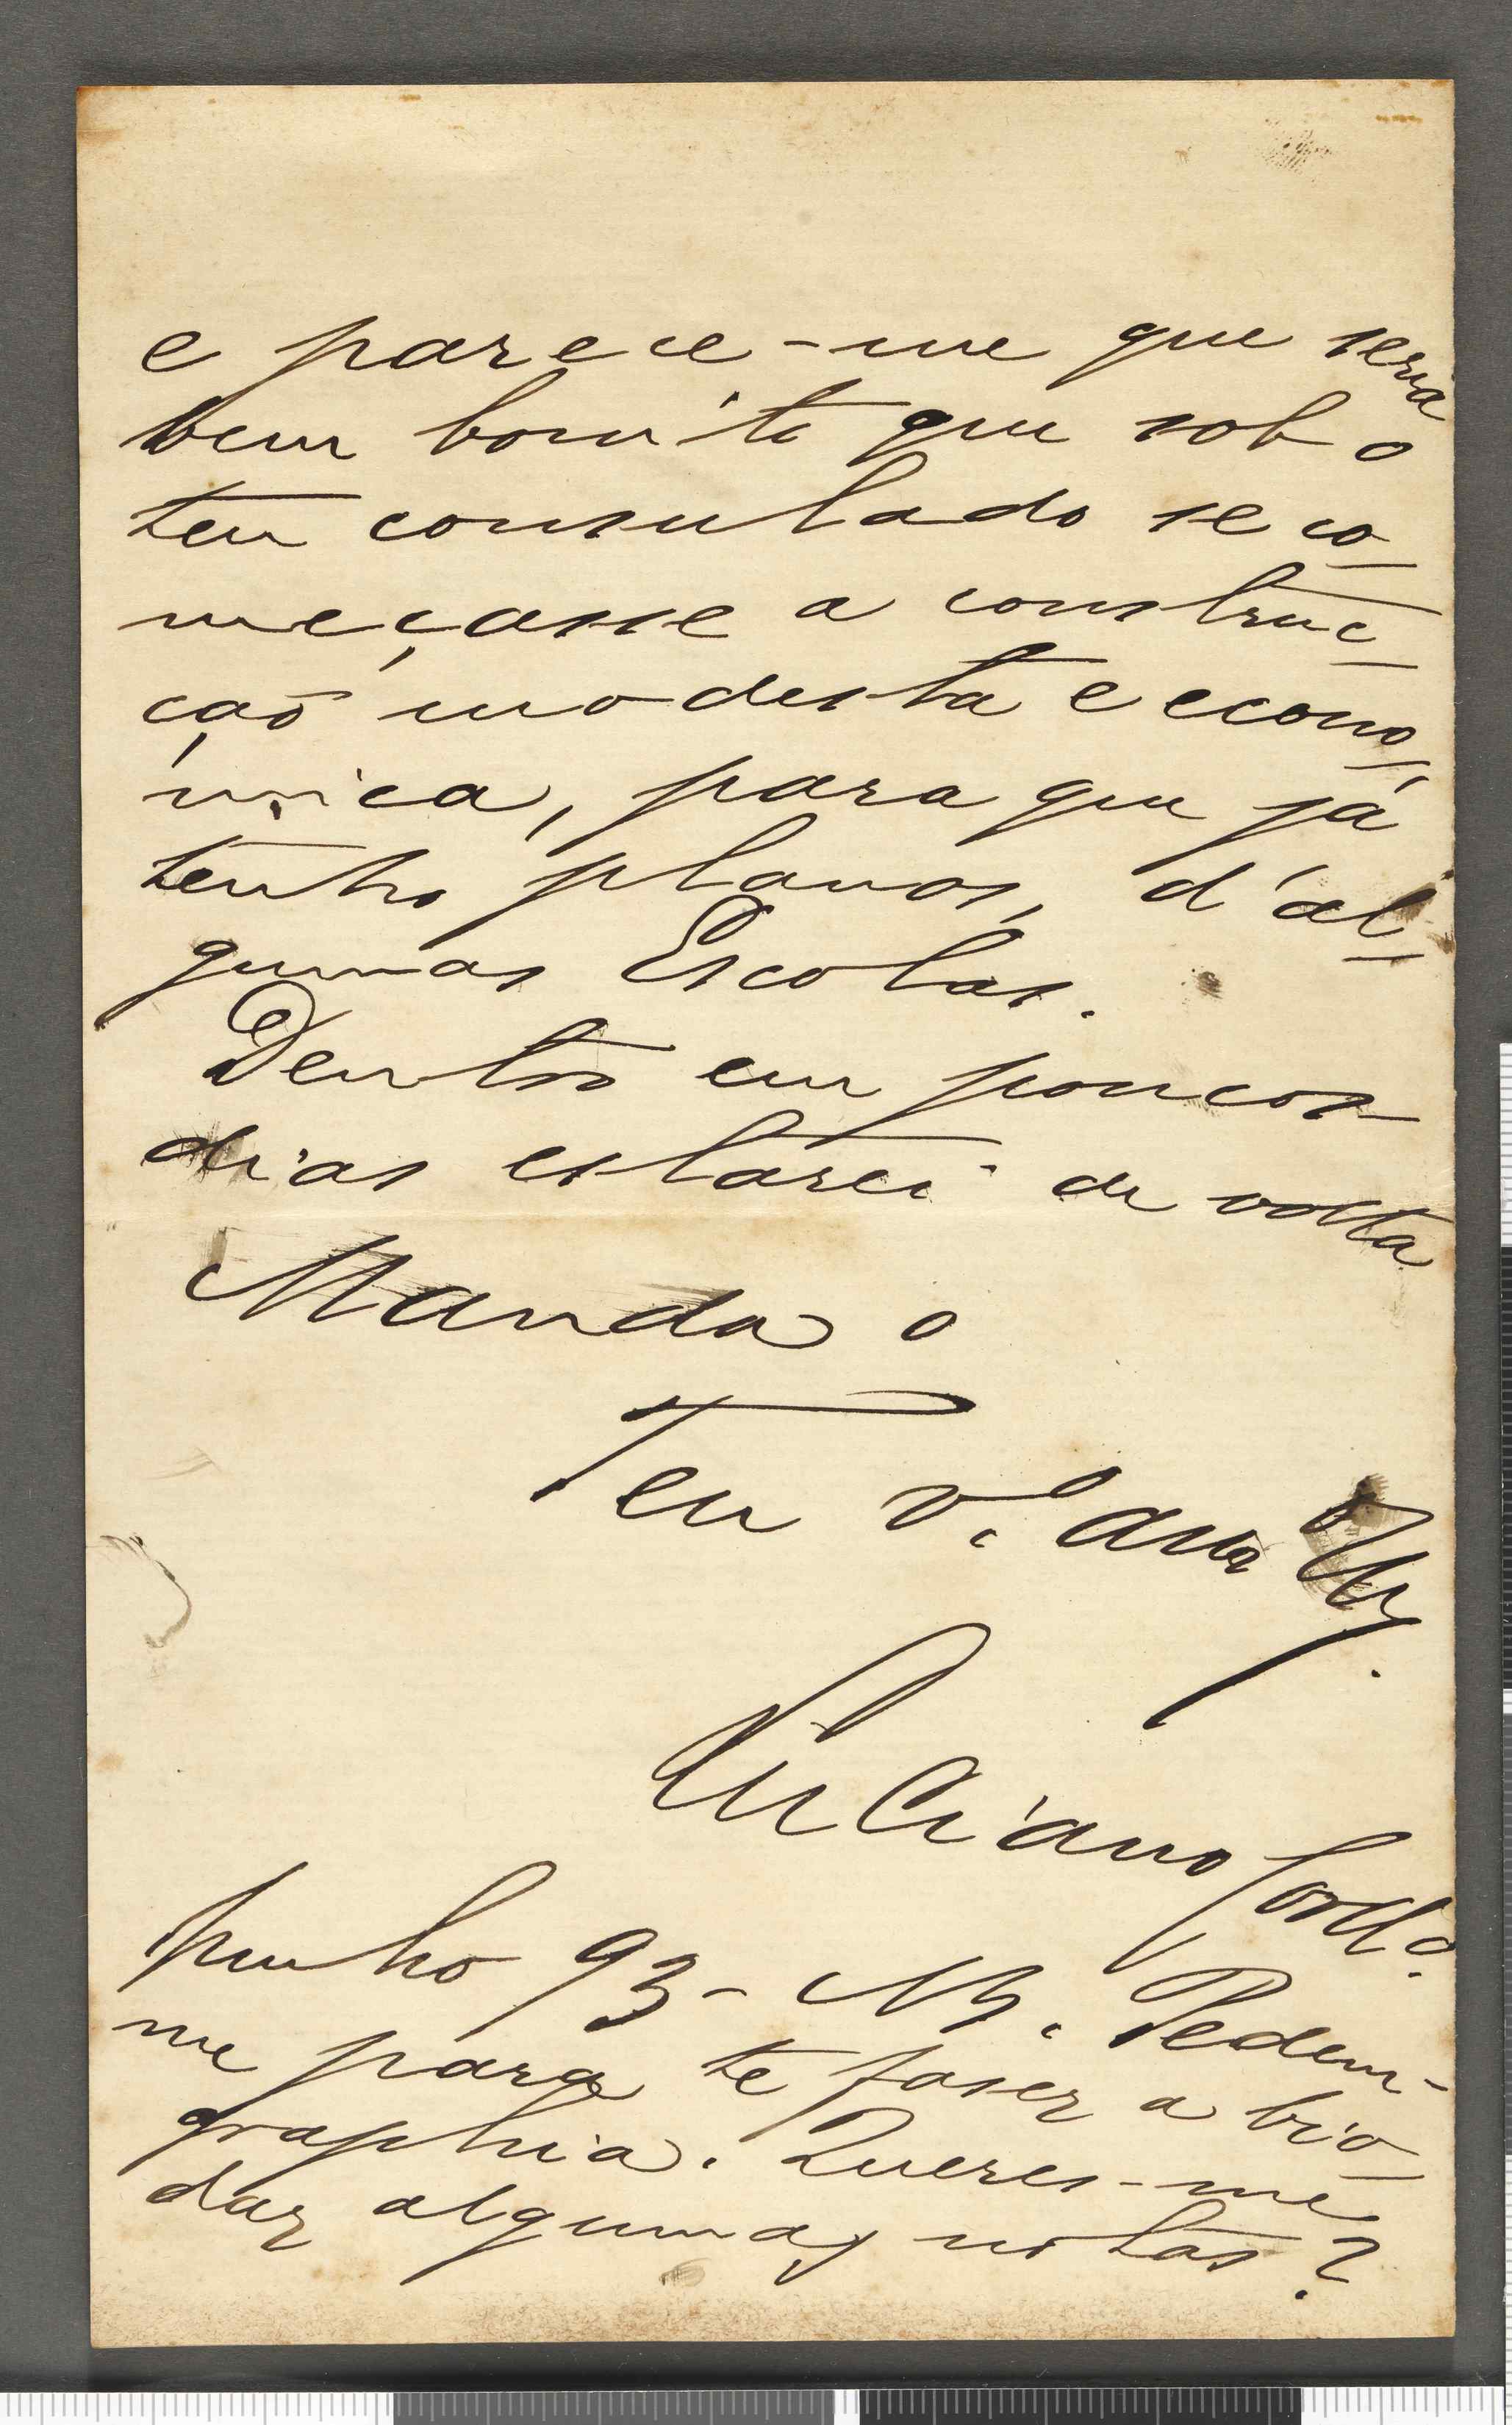 e parece-me que seria
bem bonito que sob o
teu consulado se co-
meçasse a construc-
ção modesta e econo-
mica, para que já
tenho planos, d'al-
gumas Escolas.
Dentro em poucos
dias estarei de volta
Manda o
Teu v.º amº
Luciano Cord.º
Junho 93 - NB. Pedem-
me para te faser a bio-
graphia. Queres-me
dar algumas notas?